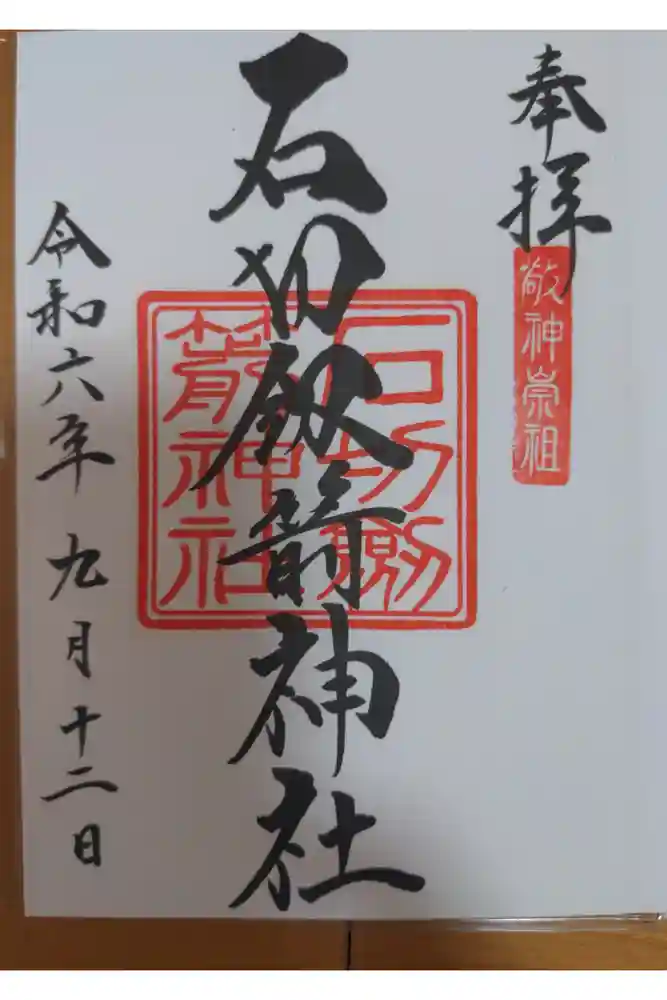 奉拝
敬神崇祖
石切劔箭神社
石切劔
箭神社
令和六年九月十二日